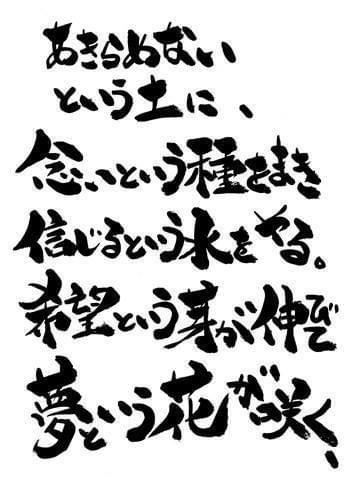 あきらめない
という土に、
念いという種をまき
信じるという水をやる。
希望という芽が伸びて
夢という花が咲く、